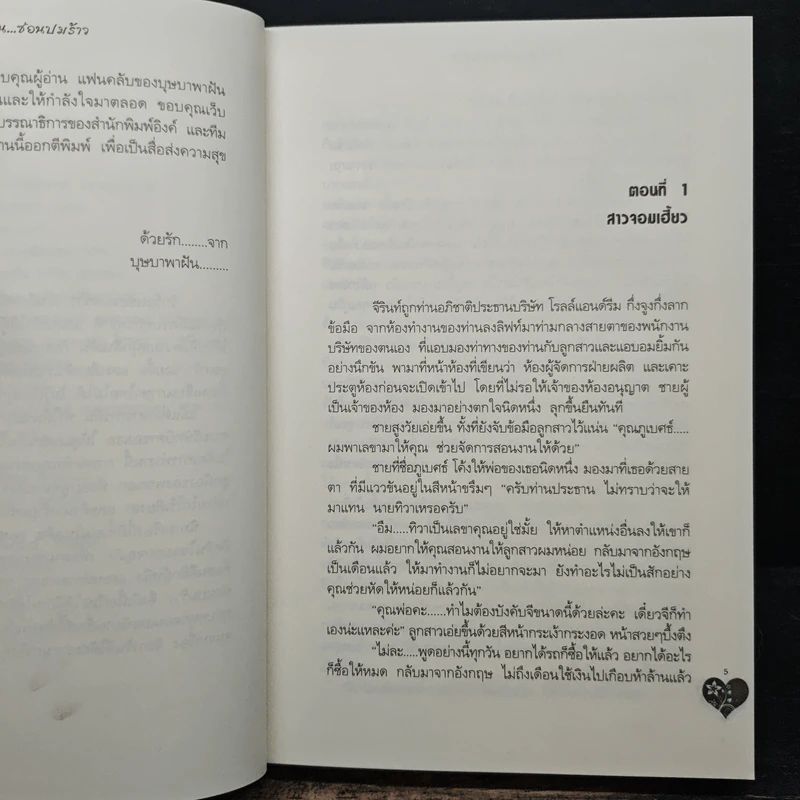 น...ซ่อนปมร้าว
บคุณผู้อ่าน แฟนคลับของบุษบาพาฝัน
นและให้กำลังใจมาตลอด ขอบคุณเว็บ
บรรณาธิการของสำนักพิมพ์อิงค์ และทีม
านนี้ออกตีพิมพ์ เพื่อเป็นสื่อส่งความสุข
ด้วยรัก........จาก
บุษบาพาฝัน.........
ตอนที่ 1
สาวจอมเฮี้ยว
จีรินท์ถูกท่านอภิชาติประธานบริษัท โรลล์แอนด์รีม กึ่งจูงกึ่งลาก
ข้อมือ จากห้องทำงานของท่านลงลิฟท์มาท่ามกลางสายตาของพนักงาน
บริษัทของตนเอง ที่แอบมองท่าทางของท่านกับลูกสาวและแอบอมยิ้มกัน
อย่างนึกขัน พามาที่หน้าห้องที่เขียนว่า ห้องผู้จัดการฝ่ายผลิต และเคาะ
ประตูห้องก่อนจะเปิดเข้าไป โดยที่ไม่รอให้เจ้าของห้องอนุญาต ชายผู้
เป็นเจ้าของห้อง มองมาอย่างตกใจนิดหนึ่ง ลุกขึ้นยืนทันที
ชายสูงวัยเอ่ยขึ้น ทั้งที่ยังจับข้อมือลูกสาวไว้แน่น “คุณภูเบศร์.....
ผมพาเลขามาให้คุณ ช่วยจัดการสอนงานให้ด้วย”
ชายที่ชื่อภูเบศร์ โค้งให้พ่อของเธอนิดหนึ่ง มองมาที่เธอด้วยสาย
ตา ที่มีแววขันอยู่ในสีหน้าขรึมๆ “ครับท่านประธาน ไม่ทราบว่าจะให้
มาแทน นายทิวาเหรอครับ”
“อืม.....ทิวาเป็นเลขาคุณอยู่ใช่มั้ย ให้หาตำแหน่งอื่นลงให้เขาก็
แล้วกัน ผมอยากให้คุณสอนงานให้ลูกสาวผมหน่อย กลับมาจากอังกฤษ
เป็นเดือนแล้ว ให้มาทำงานก็ไม่อยากจะมา ยังทำอะไรไม่เป็นสักอย่าง
คุณช่วยหัดให้หน่อยก็แล้วกัน”
“คุณพ่อคะ......ทำไมต้องบังคับจีขนาดนี้ด้วยล่ะคะ เดี๋ยวจีก็ทำ
เองน่ะแหละค่ะ” ลูกสาวเอ่ยขึ้นด้วยสีหน้ากระเง้ากระงอด หน้าสวยๆบึ้งตึง
“ไม่ละ.....พูดอย่างนี้ทุกวัน อยากได้รถก็ซื้อให้แล้ว อยากได้อะไร
ก็ซื้อให้หมด กลับมาจากอังกฤษ ไม่ถึงเดือนใช้เงินไปเกือบห้าล้านแล้ว
5